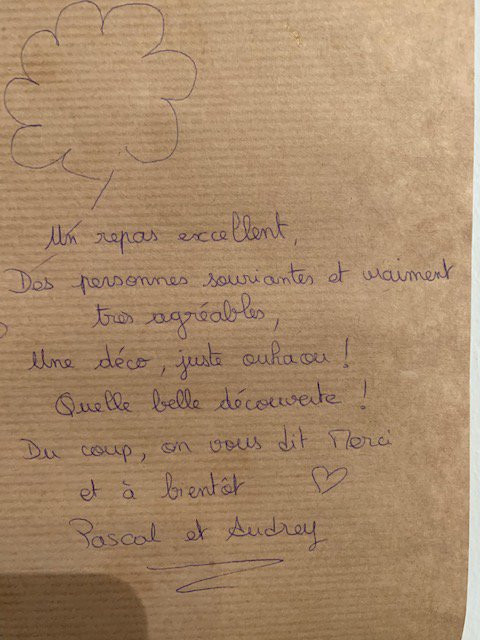 Un repas excellent,
Des personnes souriantes et vraiment
tres agréables,
Une déco, juste ouhaou !
Quelle belle découverte !
Du coup, on vous dit Merci
et à bientôt
Pascal et Audrey